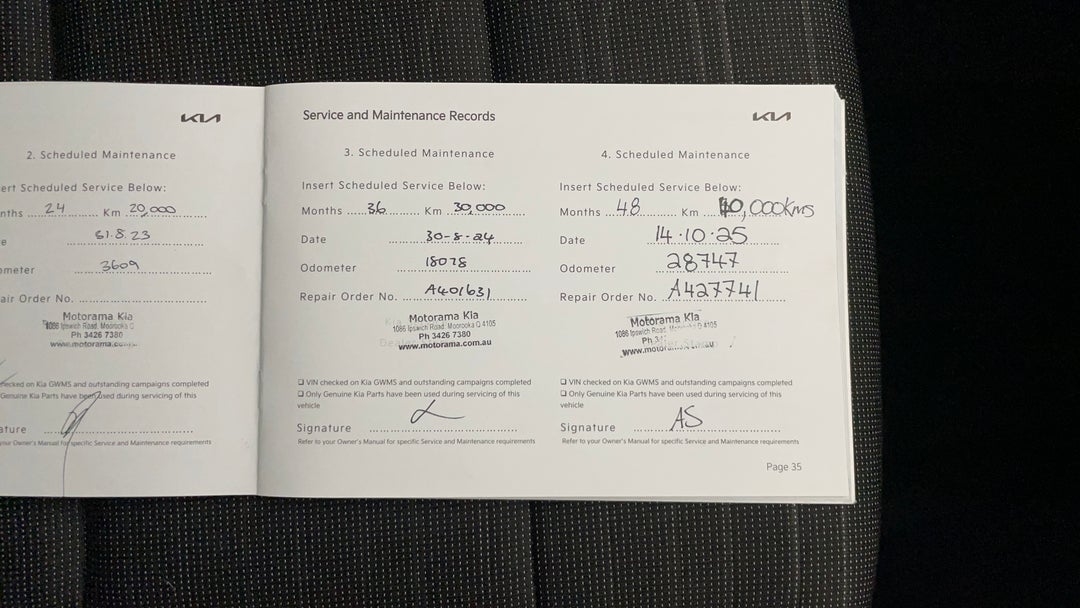 KIA
2. Scheduled Maintenance
ert Scheduled Service Below:
nths 24 Km 20,000
e 31.8.23
ometer 3609
air Order No.
Motorama Kia
1086 Ipswich Road, Moorooka Q
Ph 3426 7380
www.motorama.com
hecked on Kia GWMS and outstanding campaigns completed
Genuine Kia Parts have been used during servicing of this
ature
your Owner's Manual for specific Service and Maintenance requirements
Service and Maintenance Records
KIA
3. Scheduled Maintenance
Insert Scheduled Service Below:
Months 36 Km 30,000
Date 30-8-24
Odometer 18078
Repair Order No. A401631
Motorama Kia
1086 Ipswich Road, Moorooka Q 4105
Ph 3426 7380
www.motorama.com.au
❏ VIN checked on Kia GWMS and outstanding campaigns completed
❏ Only Genuine Kia Parts have been used during servicing of this
vehicle
Signature
Refer to your Owner's Manual for specific Service and Maintenance requirements
4. Scheduled Maintenance
Insert Scheduled Service Below:
Months 48 Km 40,000Kms
Date 14.10.25
Odometer 28747
Repair Order No. A427741
Motorama Kia
1086 Ipswich Road, Q 4105
Ph
❏ VIN checked on Kia GWMS and outstanding campaigns completed
❏ Only Genuine Kia Parts have been used during servicing of this
vehicle
Signature AS
Refer to your Owner's Manual for specific Service and Maintenance requirements
Page 35